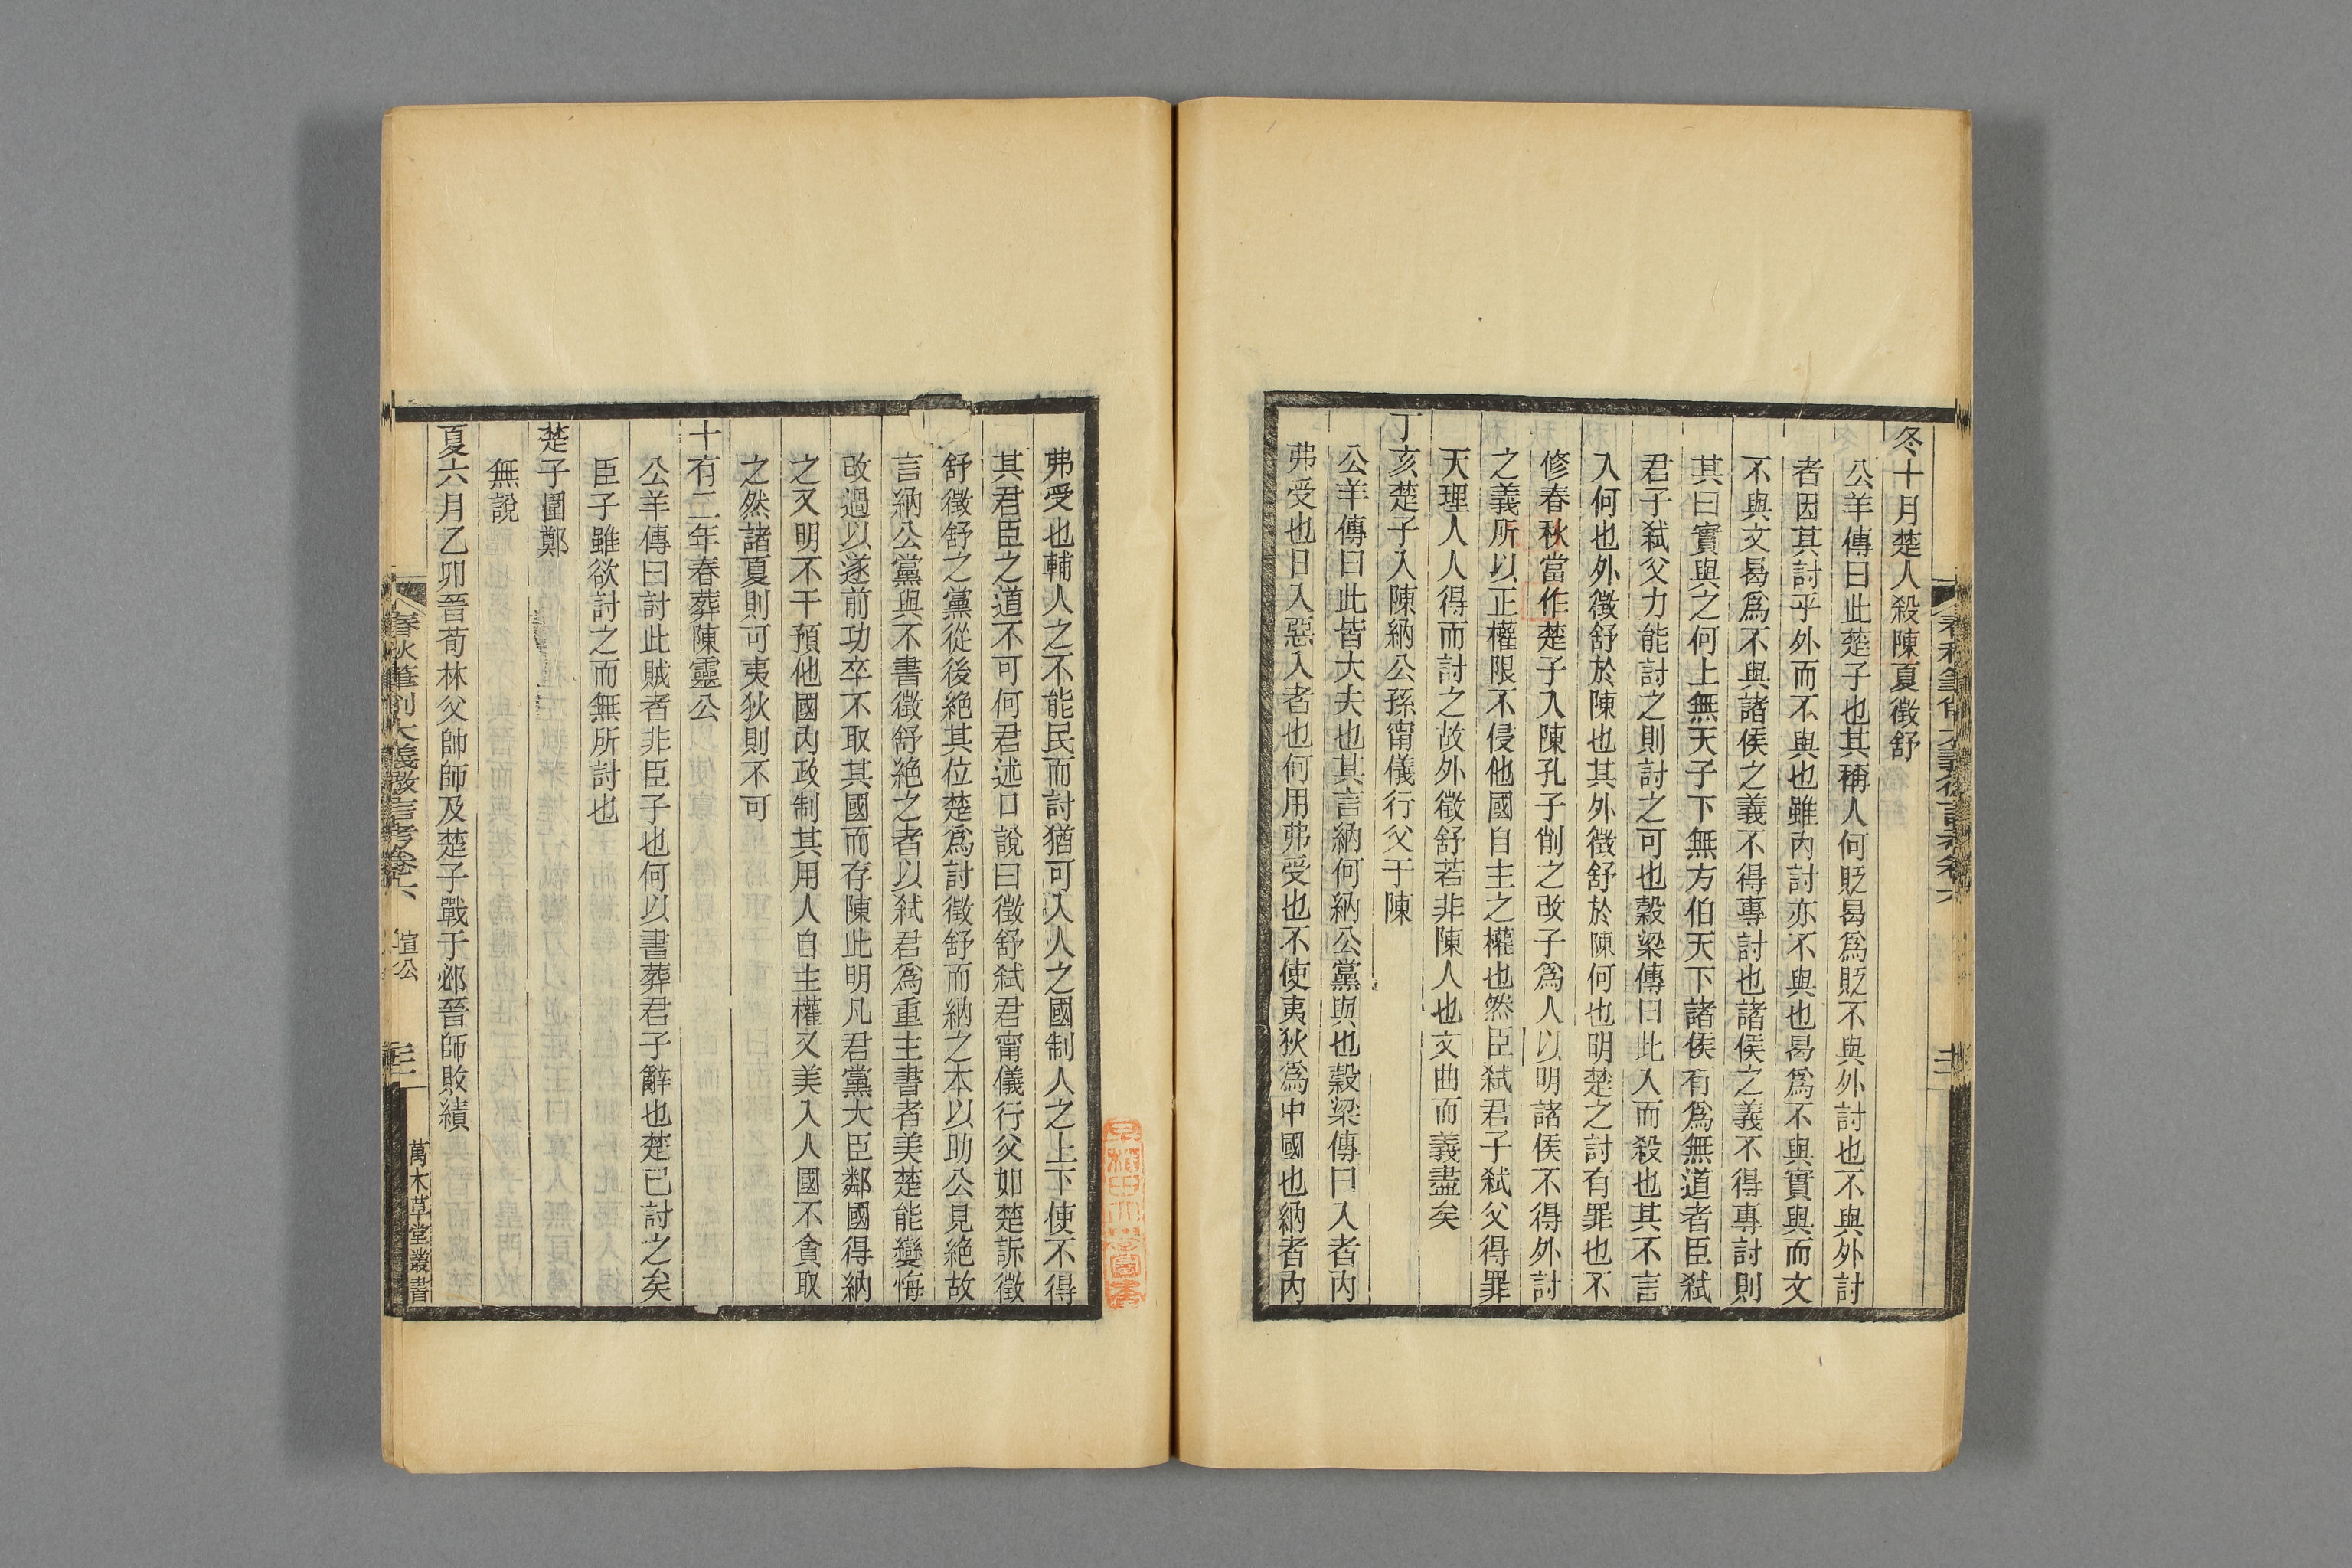 冬十月楚人殺陳夏徵舒
公羊傳曰此楚子也其稱人何貶曷爲貶不與外討也不與外討
者因其討乎外而不與也雖內討亦不與也曷爲不與實與而文
不與文曷爲不與諸侯之義不得專討也諸侯之義不得專討則
其曰實與之何上無天子下無方伯天下諸侯有爲無道者臣弑
君子弑父力能討之則討之可也穀梁傳曰此入而殺也其不言
入何也外徵舒於陳也其外徵舒於陳何也明楚之討有罪也不
修春秋當作楚子入陳孔子削之改子爲人以明諸侯不得外討
之義所以正權限不侵他國自主之權也然臣弑君子弑父得罪
天理人人得而討之故外徵舒若非陳人也文曲而義盡矣
丁亥楚子入陳納公孫甯儀行父于陳
公羊傳曰此皆大夫也其言納何納公黨與也穀梁傳曰入者內
弗受也日入惡入者也何用弗受也不使夷狄爲中國也納者內
弗受也輔人之不能民而討猶可入人之國制人之上下使不得
其君臣之道不可何君述口說曰徵舒弑君甯儀行父如楚訴徵
舒徵舒之黨從後絶其位楚爲討徵舒而納之本以助公見絶故
言納公黨與不書徵舒絶之者以弑君爲重主書者美楚能變悔
改過以遂前功卒不取其國而存陳此明凡君黨大臣鄰國得納
之又明不干預他國內政制其用人自主權又美入人國不貪取
之然諸夏則可夷狄則不可
十有二年春葬陳靈公
公羊傳曰討此賊者非臣子也何以書葬君子辭也楚已討之矣
臣子雖欲討之而無所討也
楚子圍鄭
無說
夏六月乙卯晉荀林父帥師及楚子戰于邲晉師敗績
春秋筆削大義微言考卷六 宣公
萬木草堂叢書